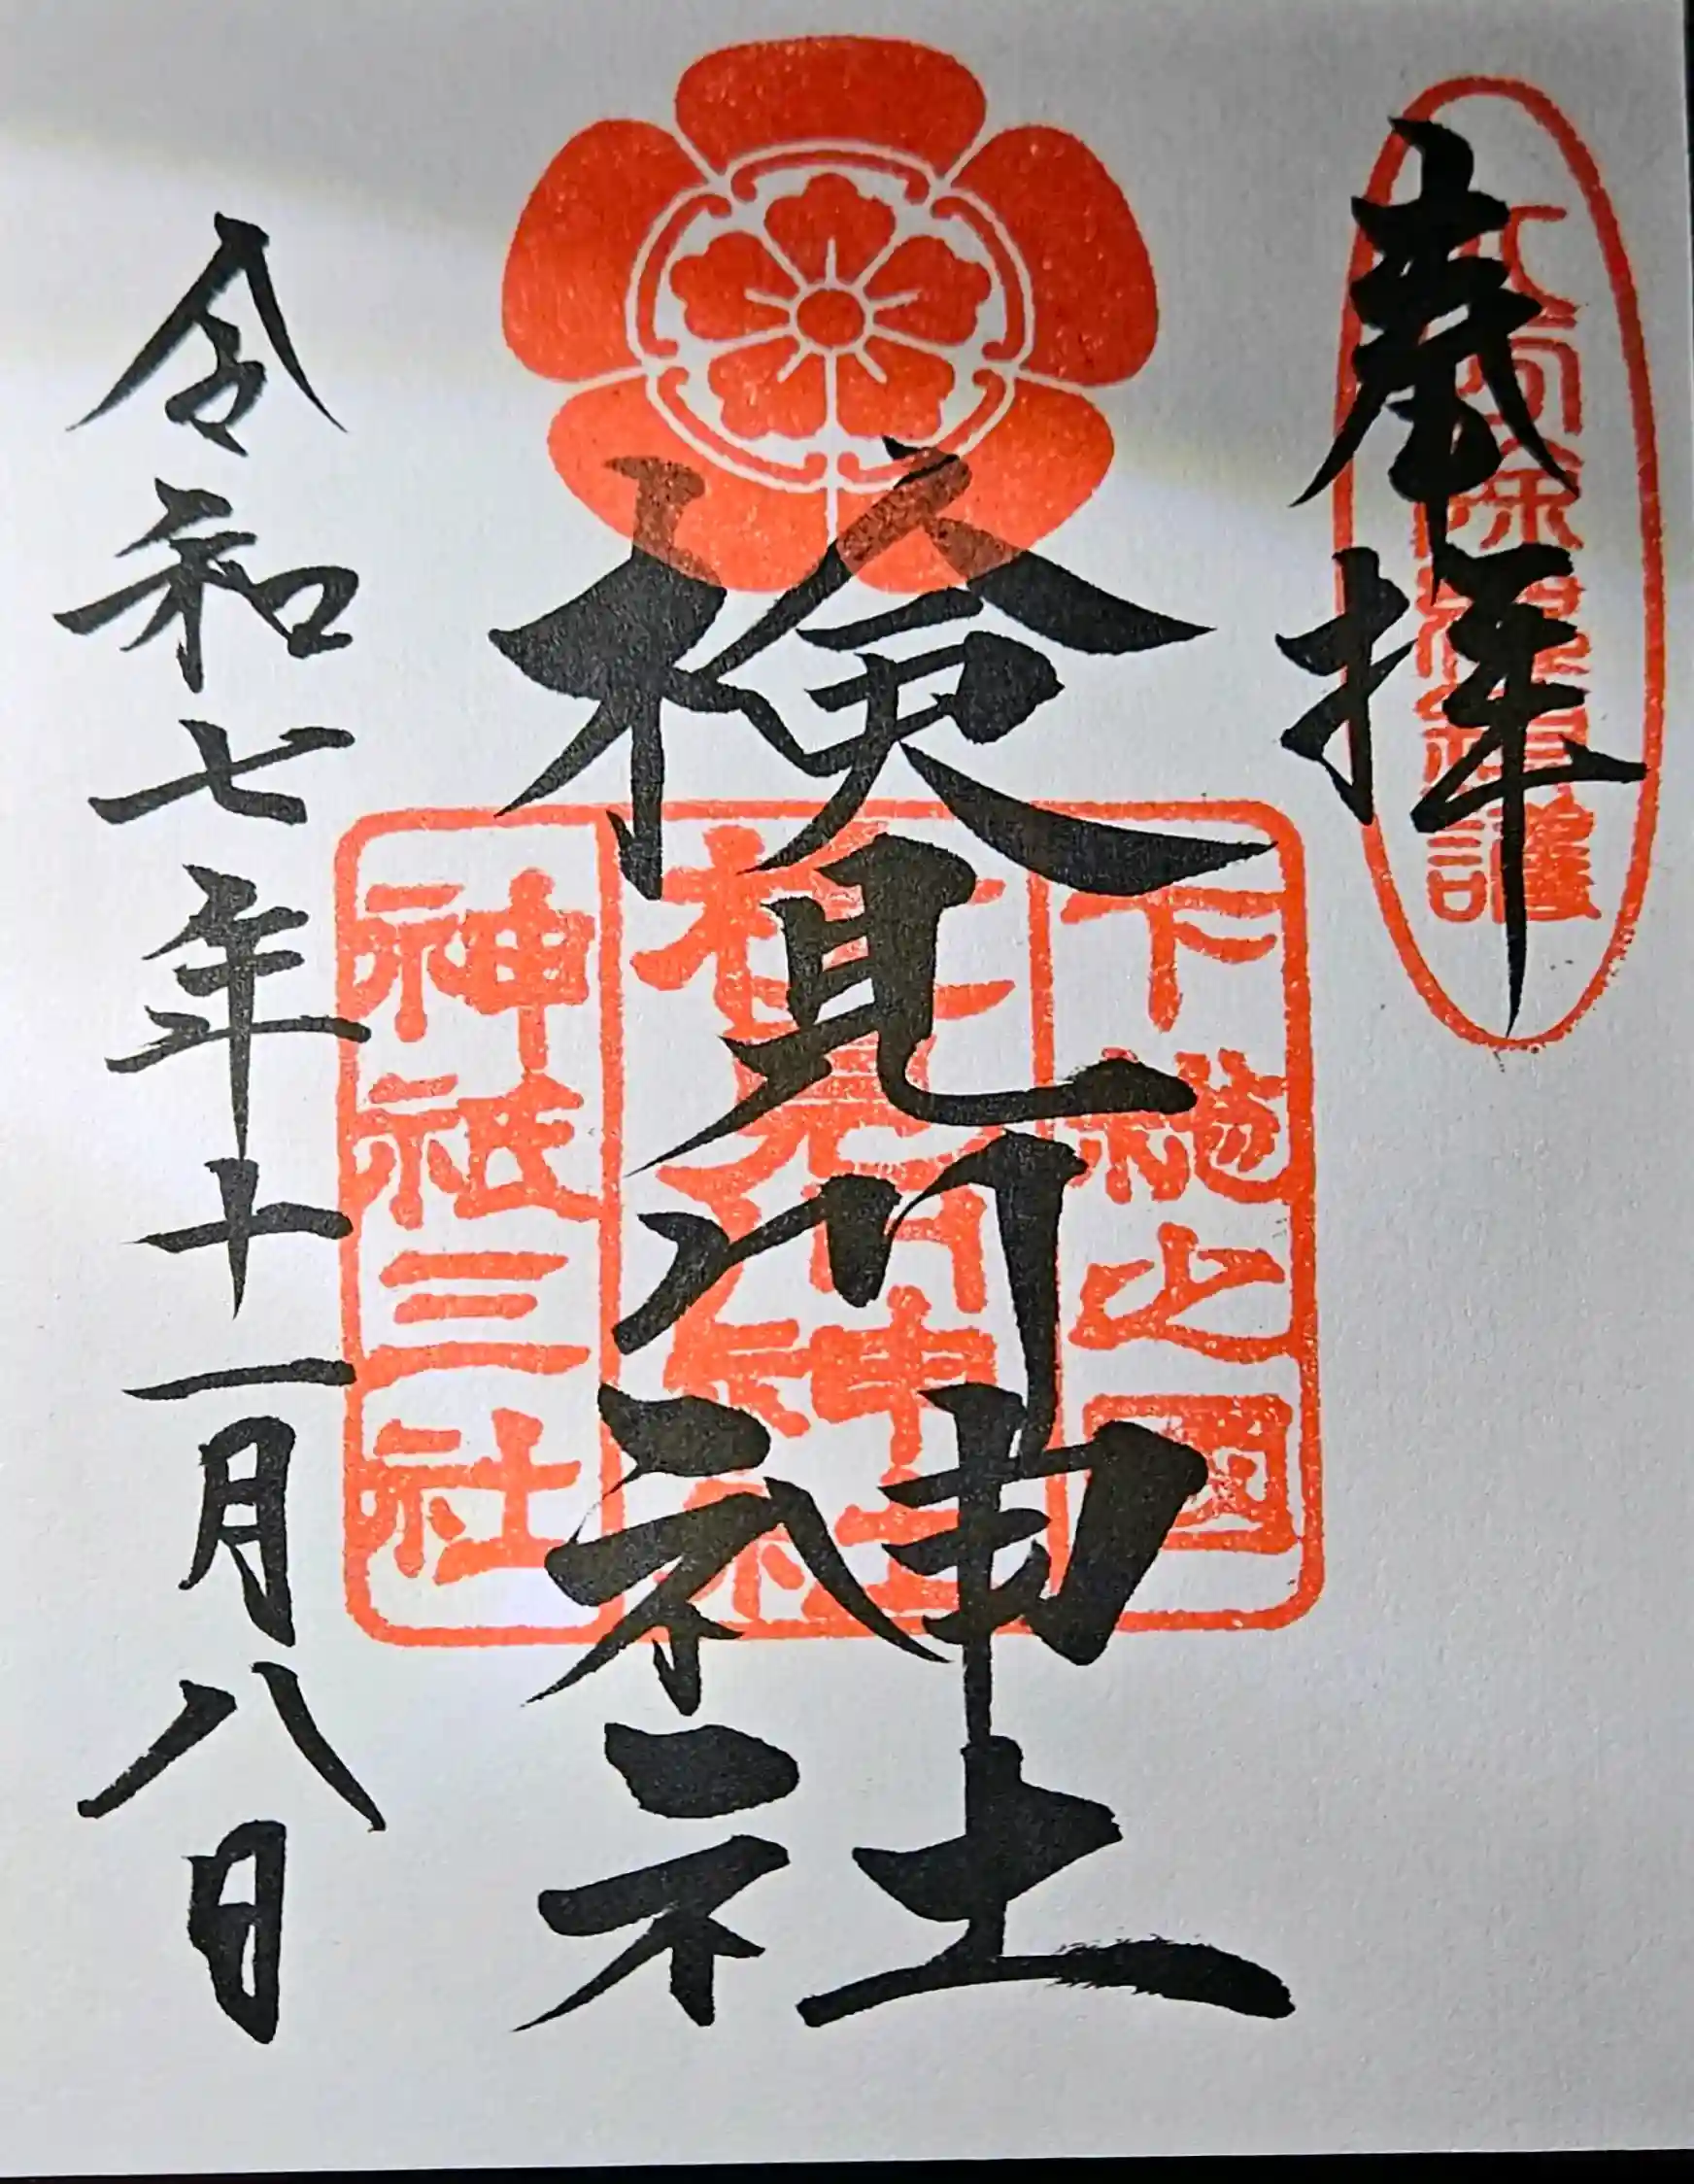 奉拝
八方除総守護
下総之國
検見川神社
検見川神社
神祇三社
令和七年十一月八日